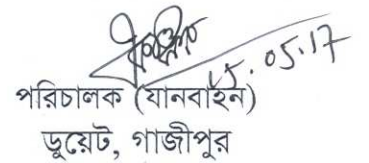 15.05.17
পরিচালক (যানবাহন)
ডুয়েট, গাজীপুর